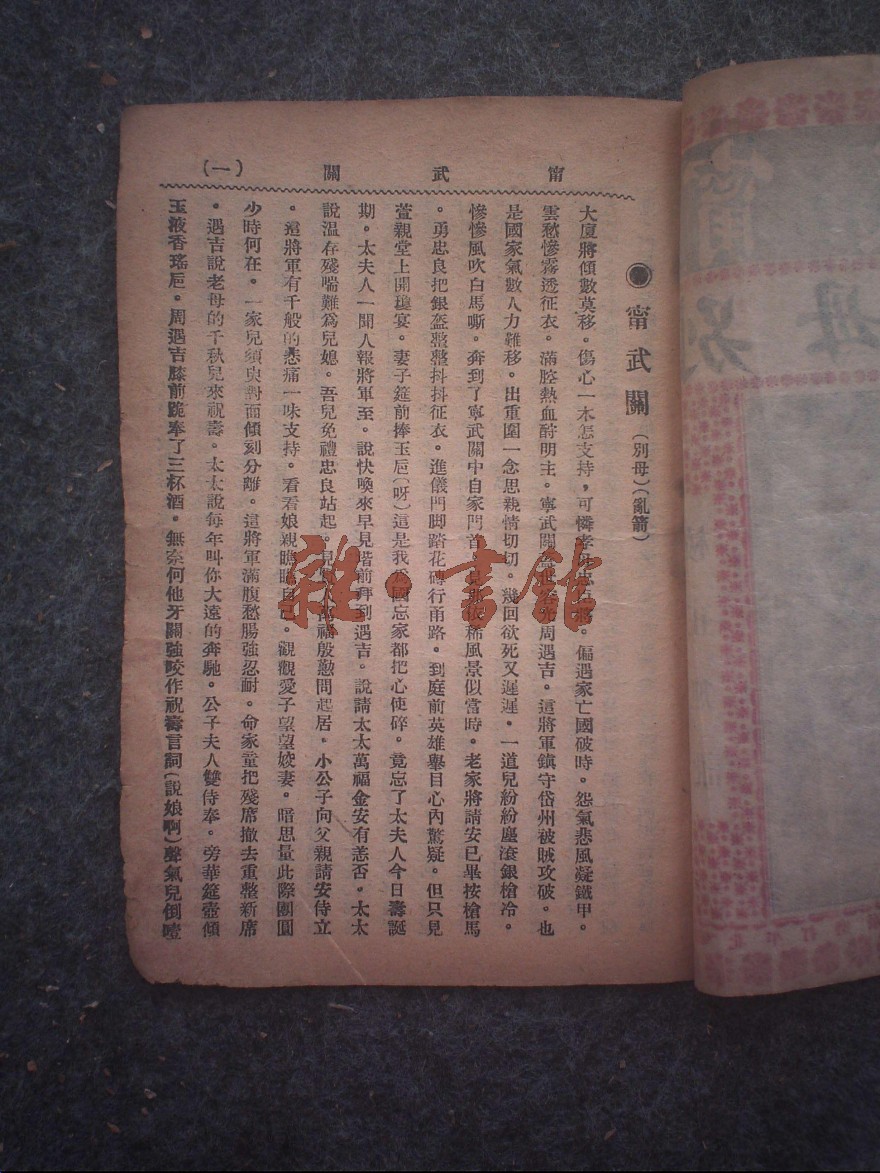 甯武關
(一)
●甯武關(別母)(亂箭)
大廈將傾數莫移。傷心一木怎支持，可憐孝。偏遇家亡國破時。怨氣悲風凝鐵甲。
雲愁慘霧透征衣。滿腔熱血酧明主。寧武關周遇吉。這將軍鎮守岱州被賊攻破。也
是國家氣數人力難移。出重圍一念思親情切切。幾回欲死又遲遲。一道兒紛紛塵滾銀槍冷。
慘慘風吹白馬嘶。奔到了寧武關中自家門首。稀風景似當時。老家將請安已畢按槍馬
。勇忠良把銀盔整整抖抖征衣。進儀門脚踏花磚行甬路。到庭前英雄舉目心內驚疑。但只見
萱親堂上開瓊宴。妻子筵前捧玉巵(呀)這是我爲國忘家都把心使碎。竟忘了太夫人今日壽誕
期。太夫人一聞人報將軍至。說快喚來早見堦前拜到遇吉。說請太太萬福金安有恙否。太太
說温存殘喘難爲兒媳。吾兒免禮忠良站起。見萬福殷懃問起居。小公子向父親請安侍立
。這將軍有千般的悲痛一味支持。看看娘親瞧瞧自己。觀觀愛子望望姣妻。暗思量此際團圓
少時何在。一家兒須臾對面傾刻分離。這將軍滿腹愁腸強忍耐。命家童把殘席撤去重整新席
。遇吉說老母的千秋兒來祝壽。太太說每年叫你大遠的奔馳。公子夫人雙侍奉。旁華筵壺傾
玉液香瑤巵。周遇吉膝前跪奉了三杯酒。無奈何他牙關強咬作祝壽言詞(說娘啊)聲氣兒倒噎
雜·書館